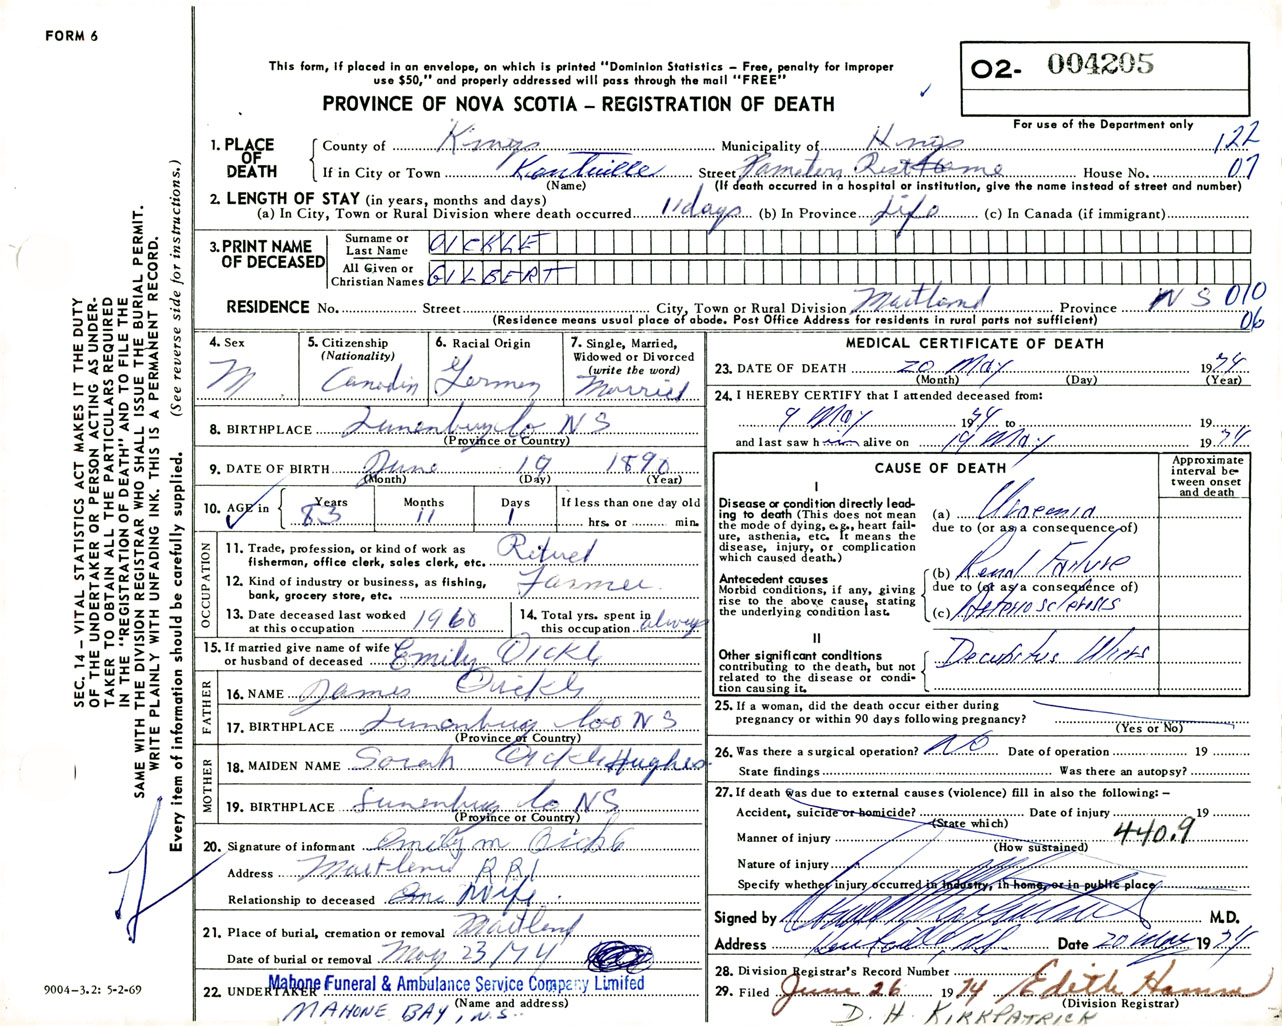 FORM 6
This form, if placed in an envelope, on which is printed "Dominion Statistics – Free, penalty for improper
use $50," and properly addressed will pass through the mail "FREE"
PROVINCE OF NOVA SCOTIA – REGISTRATION OF DEATH
O2- 004205
For use of the Department only
122
07
1. PLACE OF DEATH
County of Kings Municipality of Kings
If in City or Town Kentville Street Rest Home House No.
(Name) (If death occurred in a hospital or institution, give the name instead of street and number)
2. LENGTH OF STAY (in years, months and days)
(a) In City, Town or Rural Division where death occurred 11 days (b) In Province Life (c) In Canada (if immigrant)
3. PRINT NAME OF DECEASED
Surname or Last Name OICKLE
All Given or Christian Names GILBERT
RESIDENCE No. Street City, Town or Rural Division Maitland Province NS 010
(Residence means usual place of abode. Post Office Address for residents in rural parts not sufficient) 06
4. Sex M
5. Citizenship (Nationality) Canadin
6. Racial Origin Germen
7. Single, Married, Widowed or Divorced (write the word) Married
8. BIRTHPLACE Lunenburg Co NS
(Province or Country)
9. DATE OF BIRTH June 19 1890
(Month) (Day) (Year)
10. AGE in Years 83 Months 11 Days 1 If less than one day old hrs. or min.
OCCUPATION
11. Trade, profession, or kind of work as fisherman, office clerk, sales clerk, etc. Retired
12. Kind of industry or business, as fishing, bank, grocery store, etc. Farmer
13. Date deceased last worked at this occupation 1960
14. Total yrs. spent in this occupation always
15. If married give name of wife or husband of deceased Emily Oickle
FATHER
16. NAME James Oickle
17. BIRTHPLACE Lunenburg Co NS
(Province or Country)
MOTHER
18. MAIDEN NAME Sarah Oickle Hughes
19. BIRTHPLACE Lunenburg Co NS
(Province or Country)
20. Signature of informant Emily M Oickle
Address Maitland RR1
Relationship to deceased Wife
21. Place of burial, cremation or removal Maitland
Date of burial or removal May 23/74
22. UNDERTAKER Mahone Funeral & Ambulance Service Company Limited
(Name and address)
MAHONE BAY, N.S.
MEDICAL CERTIFICATE OF DEATH
23. DATE OF DEATH 20 May 1974
(Month) (Day) (Year)
24. I HEREBY CERTIFY that I attended deceased from:
9 May 1974 to 19
and last saw him alive on 19 May 1974
CAUSE OF DEATH
Approximate interval between onset and death
I
Disease or condition directly leading to death (This does not mean the mode of dying, e.g., heart failure, asthenia, etc. It means the disease, injury, or complication which caused death.)
(a) Uraemia
due to (or as a consequence of)
Antecedent causes
Morbid conditions, if any, giving rise to the above cause, stating the underlying condition last.
(b) Renal Failure
due to (or as a consequence of)
(c) Arteriosclerosis
II
Other significant conditions contributing to the death, but not related to the disease or condition causing it.
Decubitus Ulcers
25. If a woman, did the death occur either during pregnancy or within 90 days following pregnancy?
(Yes or No)
26. Was there a surgical operation? NO Date of operation 19
State findings Was there an autopsy?
27. If death was due to external causes (violence) fill in also the following: –
Accident, suicide or homicide? Date of injury 19
(State which)
Manner of injury 440.9
(How sustained)
Nature of injury
Specify whether injury occurred in industry, in home, or in public place
Signed by M.D.
Address Date 20 May 1974
28. Division Registrar's Record Number
29. Filed June 26 1974 Edith
(Division Registrar)
D. H. KIRKPATRICK
SEC. 14 – VITAL STATISTICS ACT MAKES IT THE DUTY
OF THE UNDERTAKER OR PERSON ACTING AS UNDER-
TAKER TO OBTAIN ALL THE PARTICULARS REQUIRED
IN THE "REGISTRATION OF DEATH" AND TO FILE THE
SAME WITH THE DIVISION REGISTRAR WHO SHALL ISSUE THE BURIAL PERMIT.
WRITE PLAINLY WITH UNFADING INK. THIS IS A PERMANENT RECORD.
Every item of information should be carefully supplied. (See reverse side for instructions.)
9004-3.2: 5-2-69